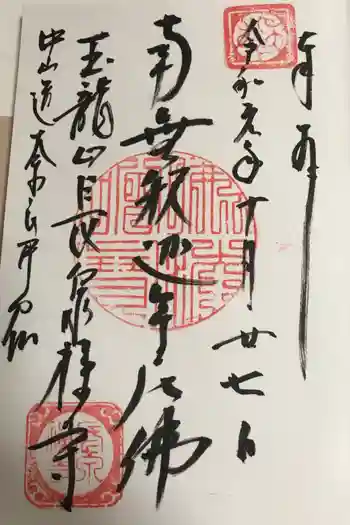 奉拝
令和元年十月廿七日
南無釈迦牟尼佛
玉龍山長泉禅寺
中山道奈良井宿